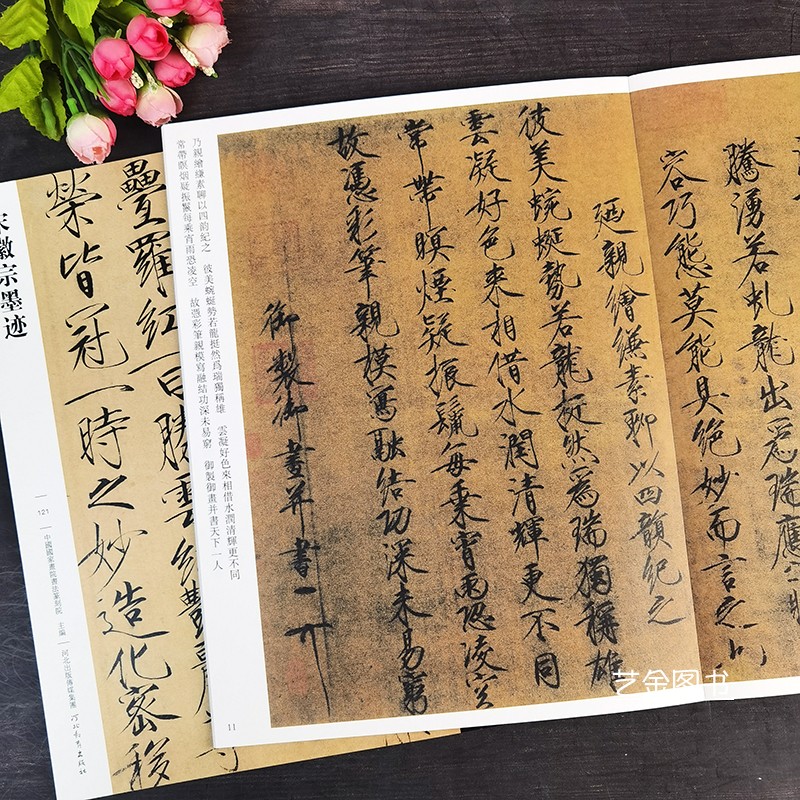 騰湧若虬龍出爲瑞應
容巧態莫能具絶妙而言之
廼親繪縑素聊以四韻紀之
彼美蜿蜒勢若龍挺然爲瑞獨稱雄
雲凝好色來相借水潤清輝更不同
常帶暝煙疑振鬣每乘宵雨恐凌空
故憑彩筆親模寫融結功深未易窮
御製御畫并書
乃親繪縑素聊以四韵紀之 彼美蜿蜒勢若龍挺然爲瑞獨稱雄 雲凝好色來相借水潤清輝更不同
常帶暝烟疑振鬣每乘宵雨恐凌空 故憑彩筆親模寫融结功深未易窮 御製御畫并書天下一人
11
疊羅紅
榮皆冠一時之妙造化密移
宋徽宗墨迹
121
中國國家畫院書法篆刻院 主編
河北出版傳媒集團 河北教育出版社
艺金图书